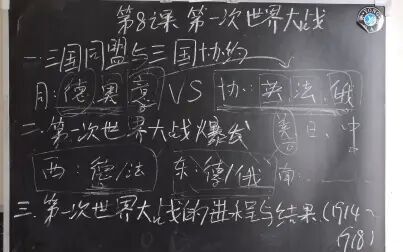 第8课 第一次世界大战
一.三国同盟与三国协约
同:德 奥 意 VS 协:英.法.俄
二.第一次世界大战爆发 美 日、中
西:德/法 东:德/俄 南:
三.第一次世界大战的进程与结果.(1914~
1918)